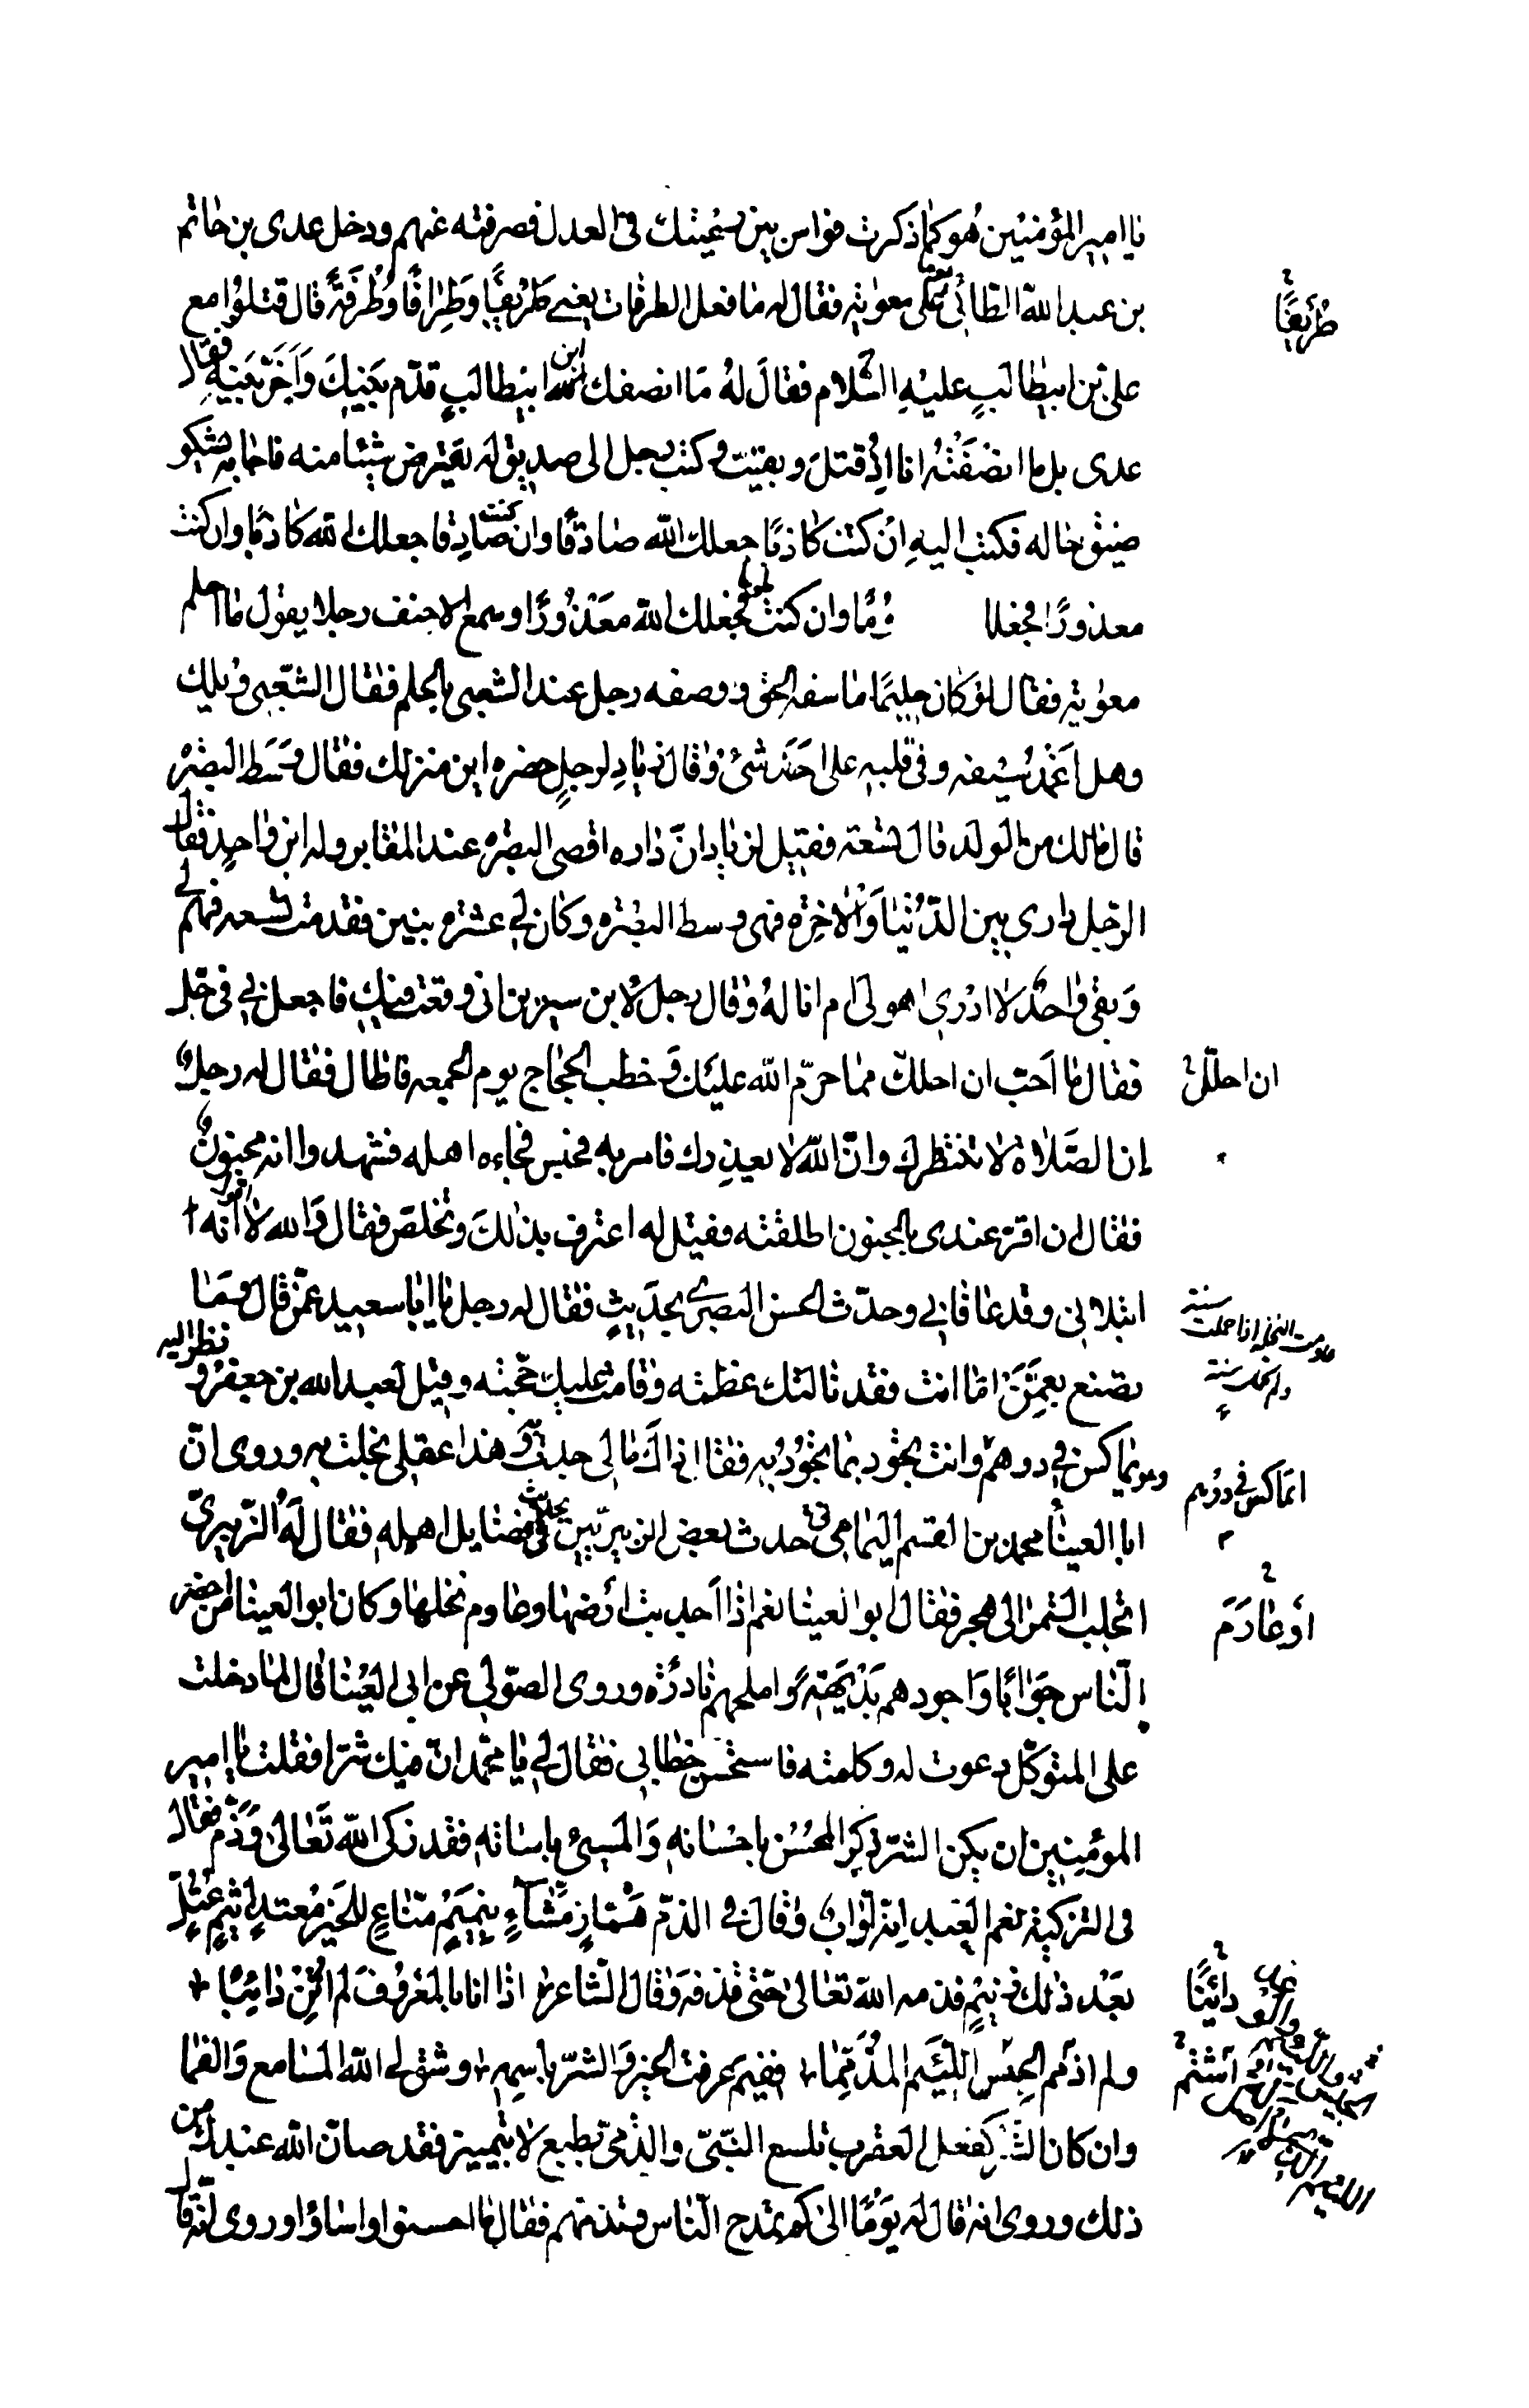 يا امير المؤمنين هو كما ذكرت فواس بين رعيتك فى العدل فصرفته عنهم ودخل عدى بن حاتم
بن عبد الله الطائى على معوية فقال له ما فعل الطرفات يعنى طريفا وطرافا وطرفة قال قتلوا مع
على بن ابيطالب عليه السلام فقال له ما انصفك ابن ابيطالب قدم بنيك واخر بنيه فقال
عدى بل ما انصفته انا اذ قتل وبقيت وكتب رجل الى صديق له يقترض شيئا منه فاجابه يشكو
ضيق حاله فكتب اليه ان كنت كاذبا جعلك الله صادقا وان كنت صادقا جعلك الله كاذبا وان كنت
معذورا فجعلك وان كنت ملوما فجعلك الله معذورا وسمع الاحنف رجلا يقول ما احلم
معوية فقال لو كان حليما ما سفه الحق ووصف رجل عند الشعبى بالحلم فقال الشعبى ويلك
وهل اغمد سيفه وفى قلبه على احد شئ وقال زياد لرجل حضره اين منزلك فقال وسط البصرة
قال مالك من الولد قال تسعة فقيل لزياد ان داره اقصى البصرة عند المقابر وله ابن واحد فقال
الرجل دارى بين الدنيا والاخرة فهى وسط البصرة وكان لى عشرة بنين فقدمت تسعة فهم لى
وبقى واحد لا ادرى اهو لى ام انا له وقال رجل لابن سيرين انى وقعت فيك فاجعلنى فى حل
فقال ما احب ان احلك مما حرم الله عليك وخطب الحجاج يوم الجمعة فاطال فقال له رجل
ان احلل
ان الصلاة لا تنتظرك وان الله لا يعذرك فامر به فحبس فجاءه اهله فشهدوا انه مجنون
فقال ان اقر عندى بالجنون اطلقته فقيل له اعترف بذلك وتخلص فقال والله لا اقول انه
ابتلانى وقد عافانى وحدث الحسن البصرى بحديث فقال له رجل يا ابا سعيد عمن قال وما
عاومت النخلة اذا حملت سنة
ولم تحمل سنة
تصنع بعمن اما انت فقد نالتك عظته وقامت عليك حجته وقيل لعبد الله بن جعفر ونظر اليه
وهو يماكس فى درهم وانت تجود بما تجود به فقال ذاك مالى جدت به وهذا عقلى بخلت به وروى ان
اتماكس فى درهم
ابا العينا محمد بن القسم اليمامى حدث بعض الزبيريين بحديث فى فضايل اهله فقال له الزبيرى
اتجلب التمر الى هجر فقال ابو العينا نعم اذا اجدبت ارضها وعاوم نخلها وكان ابو العينا من احضر
او عاوم
الناس جوابا واجودهم بديهة واملحهم نادرة وروى الصولى عن ابى العينا قال لما دخلت
على المتوكل دعوت له وكلمته فاستحسن خطابى فقال لى يا محمد ان فيك شرا فقلت يا امير
المؤمنين ان يكن الشر ذكر المحسن باحسانه والمسيئ باساته فقد زكى الله تعالى وذم فقال
فى التزكية نعم العبد انه اواب وقال فى الذم هماز مشاء بنميم مناع للخير معتد اثيم عتل
بعد ذلك زنيم فذمه الله تعالى حتى قذفه وقال الشاعر اذا انا بالمعروف لم اثن دائبا
دائبا
ولم اذمم الجبس اللئيم المذمما ففيم عرفت الخير والشر باسمه وشق لى الله المسامع والفما
اشتم
وان كان الشر كفعل العقرب تلسع النبى والذمى بطبع لا بتمييز فقد صان الله عبدك من
ذلك وروى انه قال له يوما الى كم تمدح الناس وتذمهم فقال ما احسنوا واساؤا وروى انه قال